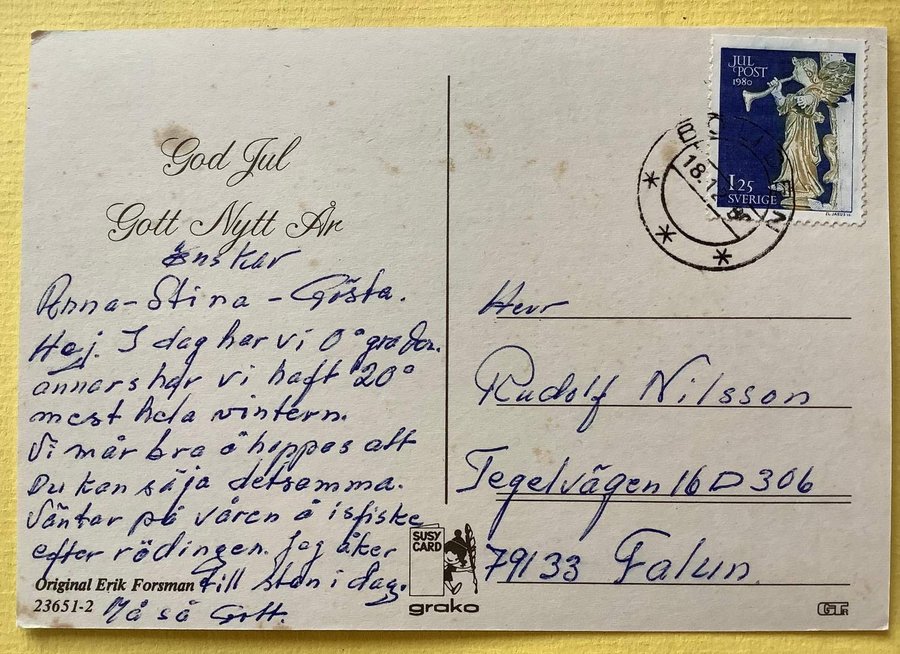 God Jul
Gott Nytt År
önskar
Anna-Stina-Gösta.
Hej. I dag har vi 0° grader.
annars har vi haft 20°
mest hela vintern.
Vi mår bra å hoppas att
Du kan säja detsamma.
Väntar på våren å isfiske
efter rödingen. Jag åker
till stan i dag.
Må så Gott.
Original Erik Forsman
23651-2
SUSY
CARD
grako
JUL
POST
1980
1 25
SVERIGE
BOLIDEN
Herr
Rudolf Nilsson
Tegelvägen 16 D 306
79133 Falun.